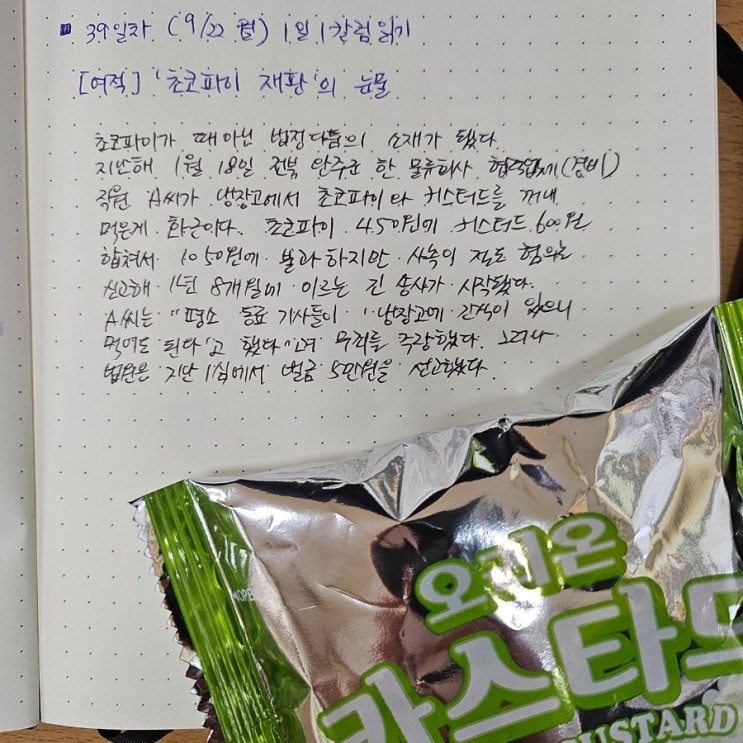 39일차 (9/22 월) 1일 1칼럼읽기
[여적] '초코파이 재판'의 눈물
초코파이가 때아닌 법정다툼의 소재가 됐다.
지난해 1월 18일 전북 완주군 한 물류회사 협력업체(경비)
직원 A씨가 냉장고에서 초코파이와 커스터드를 꺼내
먹은게 화근이다. 초코파이 450원에 커스터드 600원
합쳐서 1050원에 불과하지만 사측이 절도 혐의로
신고해 1년 8개월에 이르는 긴 송사가 시작됐다.
A씨는 "평소 동료 기사들이 '냉장고에 간식이 있으니
먹어도 된다'고 했다"며 무죄를 주장했다. 그러나
법원은 지난 1심에서 벌금 5만원을 선고했다.
오리온
카스타드
CUSTARD